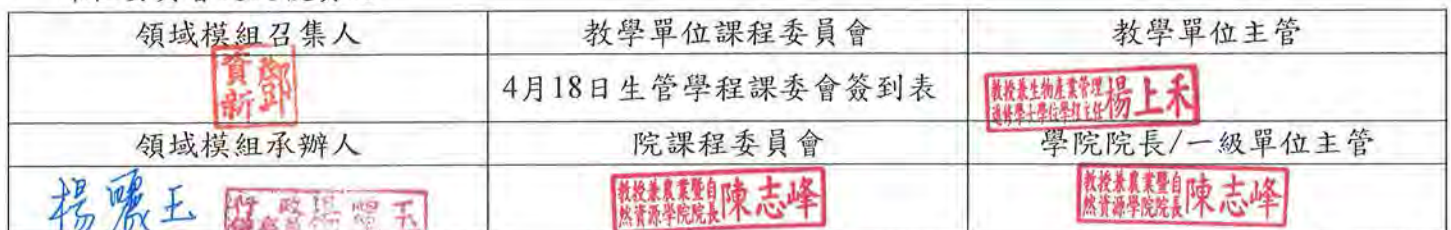 領域模組召集人 教學單位課程委員會 教學單位主管
資鄧
新邱
4月18日生管學程課委會簽到表
教授兼生物產業管理
進修學士學位學程主任 楊上禾
領域模組承辦人 院課程委員會 學院院長/一級單位主管
教授兼農業暨自
然資源學院院長 陳志峰
教授兼農業暨自
然資源學院院長 陳志峰